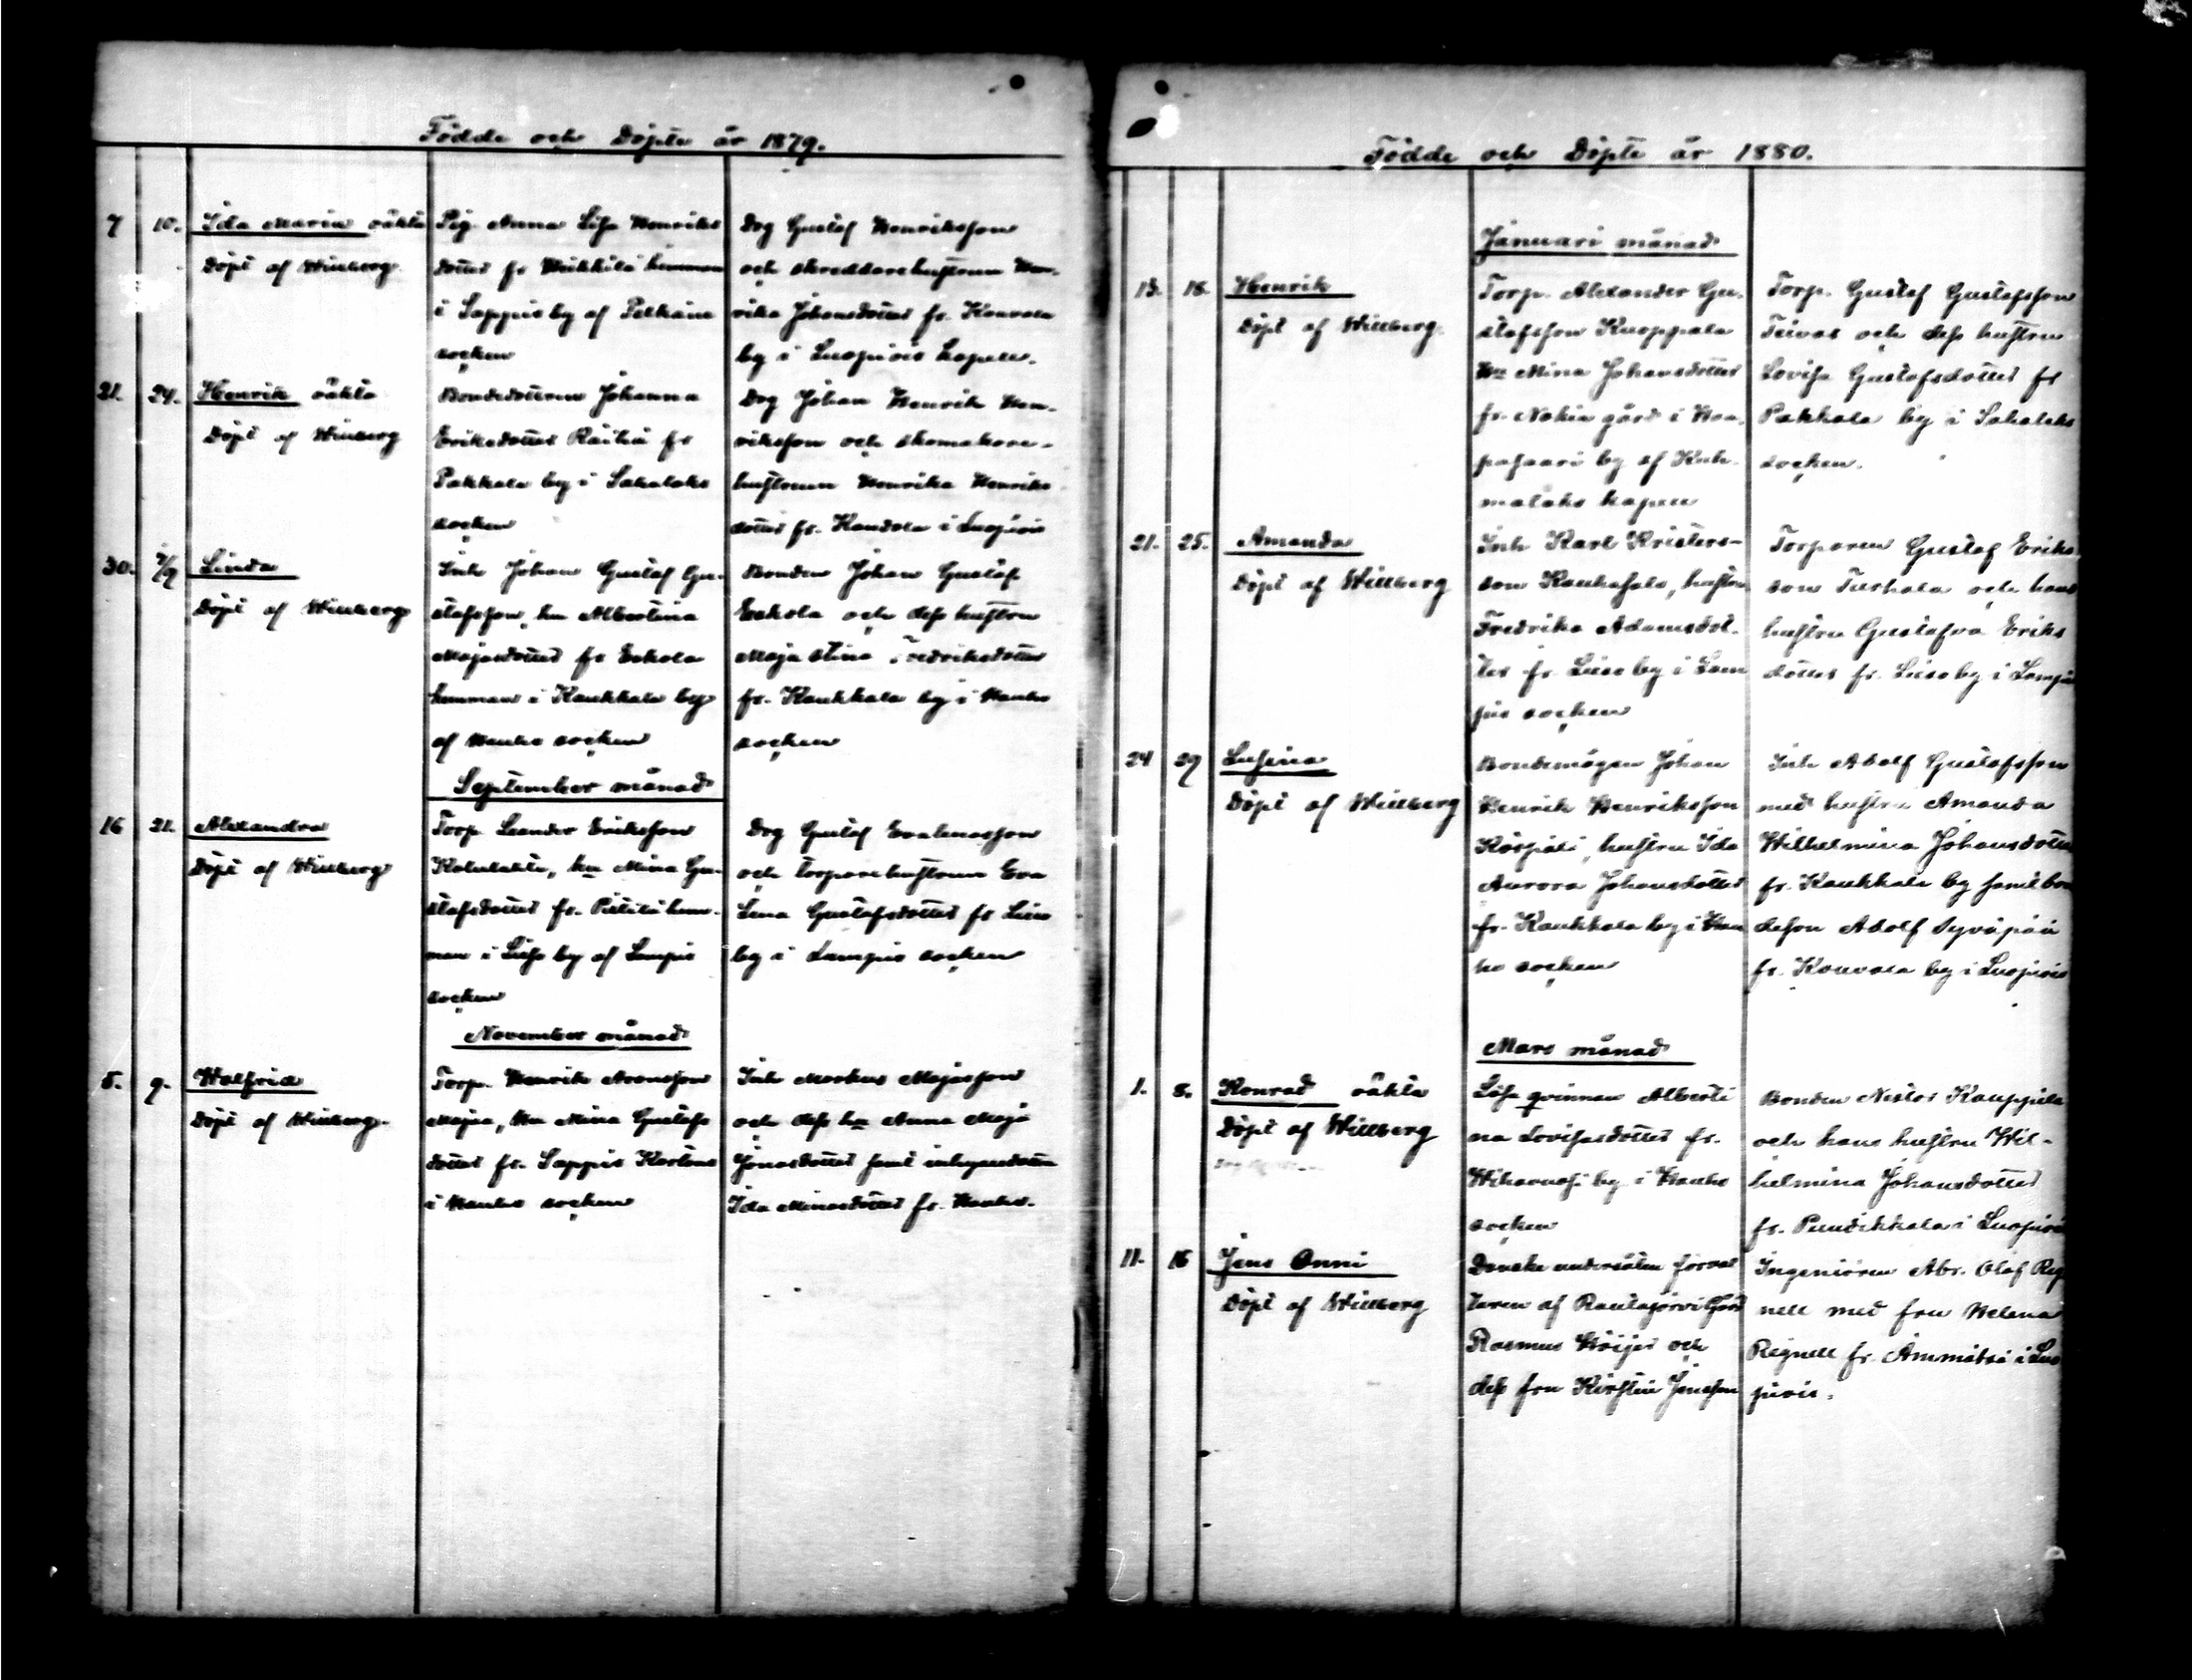 Födde och Döpte år 1879.
7 10. Ida Maria oäkta
Döpt af Willberg.
Pig. Anna Lisa Henriks
dotter fr Heikkilä hemman
i Sappis by af Pelkäne
socken
Drg Gustaf Henriksson
och skreddarehustrun Hen-
rika Johansdotter fr. Kouvala
by i Luopiois kapell.
21. 24. Henrik oäkta
Döpt af Willberg
Bondedottren Johanna
Eriksdotter Raitti fr
Pakkala by i Sahalaks
socken
Drg Johan Henrik Hen-
riksson och skomakare-
hustrun Henrika Henriks
dotter fr. i Luopiois
30. 7/9 Linda
Döpt af Willberg
Inh Johan Gustaf Gu-
stafsson, hu Albertina
Majasdotter fr Eskola
hemman i Kaukkala by
af Hauho socken
Bonden Johan Gustaf
Eskola och dess hustru
Maja Stina Fredriksdotter
fr. Kaukkala by i Hauho
socken
September månad
16 21. Alexandra
Döpt af Willberg
Torp Leander Eriksson
hu Mina Gu-
stafsdotter fr. hem-
man i Lieso by af Lampis
socken
Drg Gustaf Evalenasson
och torparehustrun Eva
Lena Gustafsdotter fr Lieso
by i Lampis socken
November månad
5. 9. Walfrid
Döpt af Willberg.
Torp. Henrik Aronsson
Majaa, Hu Mina Gustafs
dotter fr. Sappis
i Hauho socken
Inh Markus Majasson
och dess hu Anna Maja
Jonasdotter samt inhysesdottren
Ida Minasdotter fr. Hauho.
Födde och Döpte år 1880.
Januari månad
13. 18. Henrik
Döpt af Willberg.
Torp. Alexander Gu-
stafsson Kuoppala
Hu Mina Johansdotter
fr. Nokia gård i Haa-
pasaari by af Kuh-
malaks kapell
Torp. Gustaf Gustafsson
Teivas och dess hustru
Lovisa Gustafsdotter fr
Pakkala by i Sahalaks
socken.
21. 25. Amanda
Döpt af Willberg
Inh Karl Kristers-
son Kaukasalo, hustru
Fredrika Adamsdot-
ter fr. Lieso by i Lam
pis socken
Torparen Gustaf Eriks
son och hans
hustru Gustafva Eriks
dotter fr. Lieso by i Lampis
24 29 Lusina
Döpt af Willberg
Bondemågen Johan
Henrik Henriksson
hustru Ida
Aurora Johansdotter
fr. Kaukkala by i Hau
ho socken
Inh Adolf Gustafsson
med hustru Amanda
Wilhelmina Johansdotter
fr. Kaukkala by samt bon
deson Adolf Syväpää
fr. Kouvala by i Luopiois
Mars månad
1. 8. Konrad oäkta
Döpt af Willberg
Lösa qvinnan Alberti
na Lovisasdotter fr.
Wihavuosi by i Hauho
socken
Bonden Nestor Kauppila
och hans hustru Wil-
helmina Johansdotter
fr. Puutikkala i Luopiois
11. 16 Jens Onni
Döpt af Willberg
Danske undersåten förval
taren af Rautajärvi Gård
Rasmus Höijer och
dess fru Kirstin Jensson
Ingeniören Abr. Olof Reg
nell med fru Helena
Regnell fr. Ämmätsä i Luo
piois.